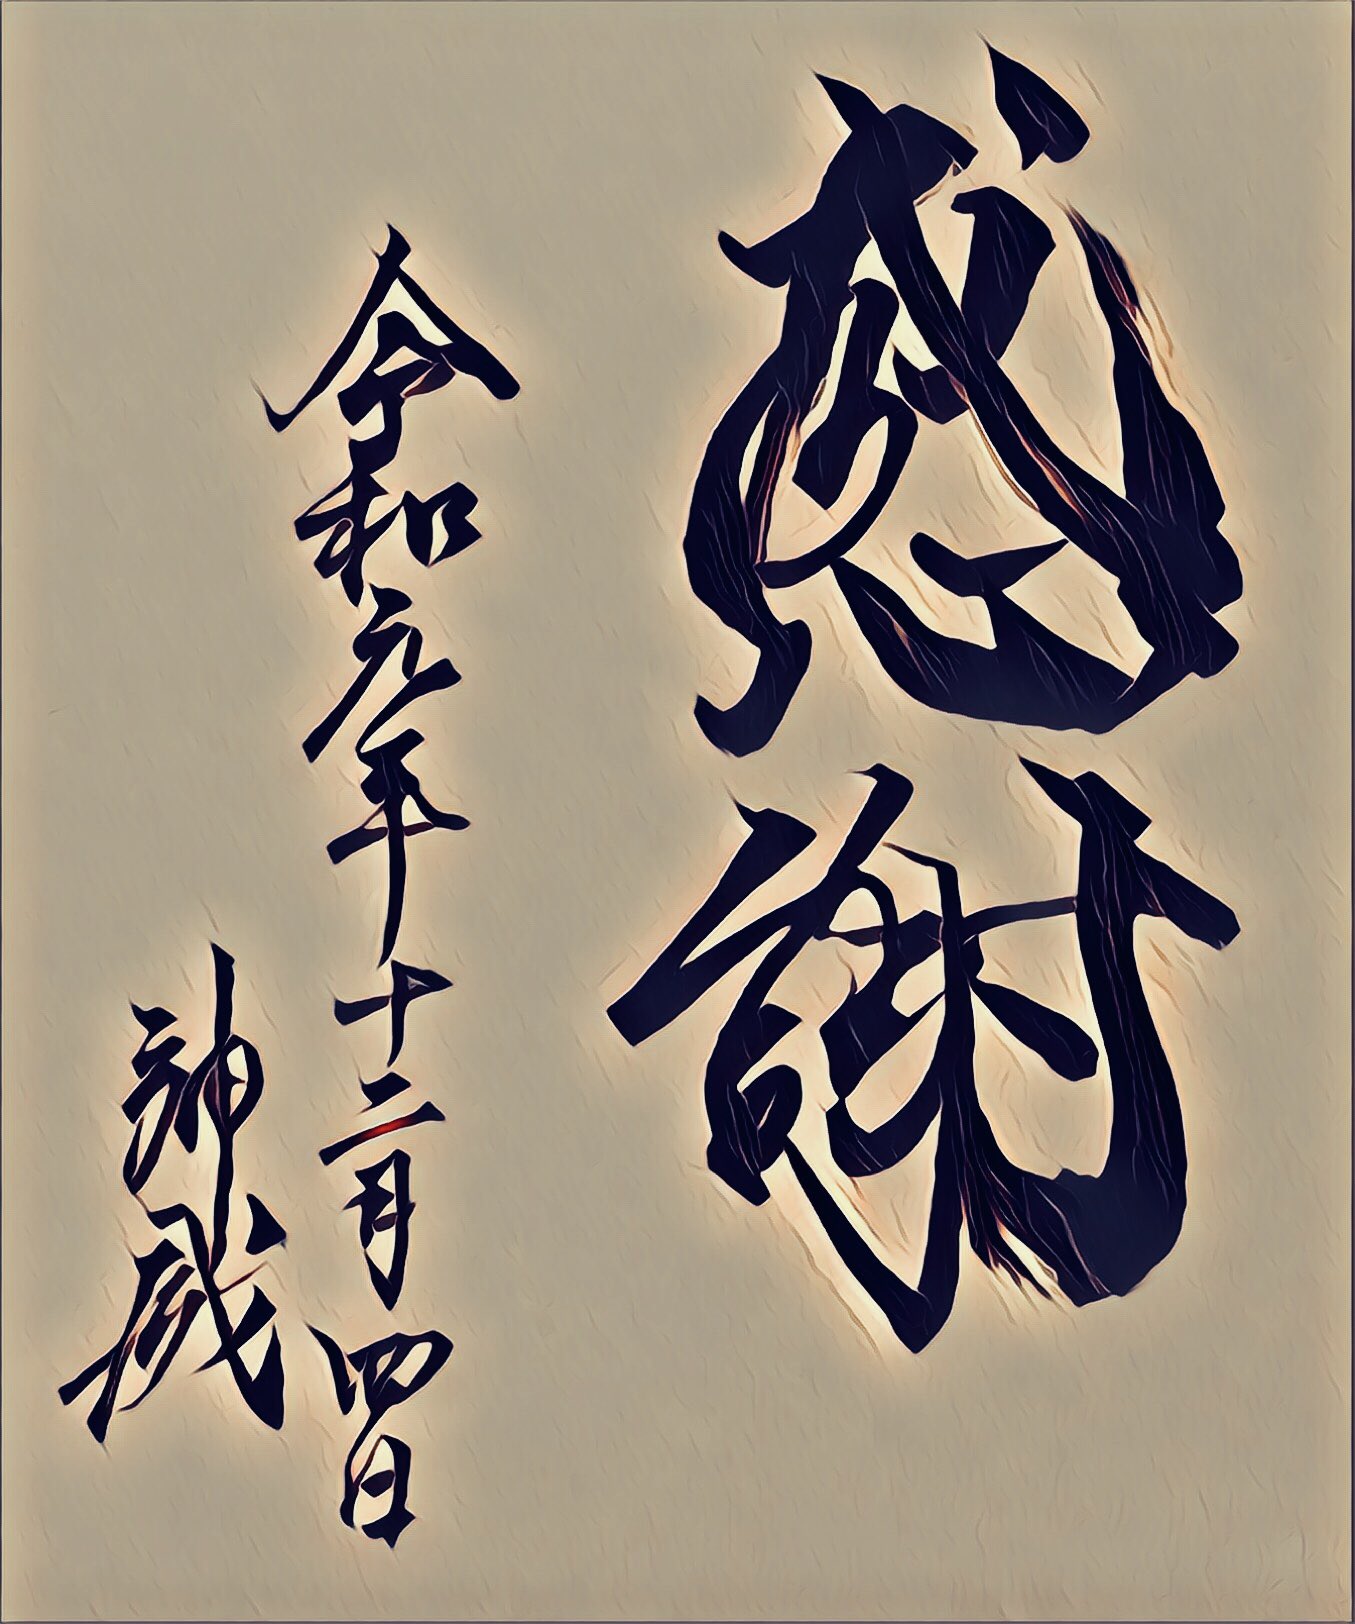 感謝
令和元年十二月四日
神威